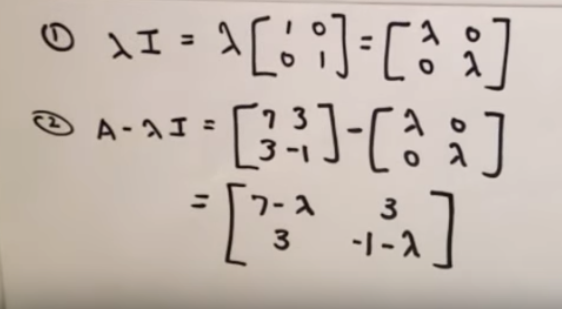 ① λI = λ[1 0; 0 1] = [λ 0; 0 λ]
② A-λI = [7 3; 3 -1] - [λ 0; 0 λ]
= [7-λ 3; 3 -1-λ]